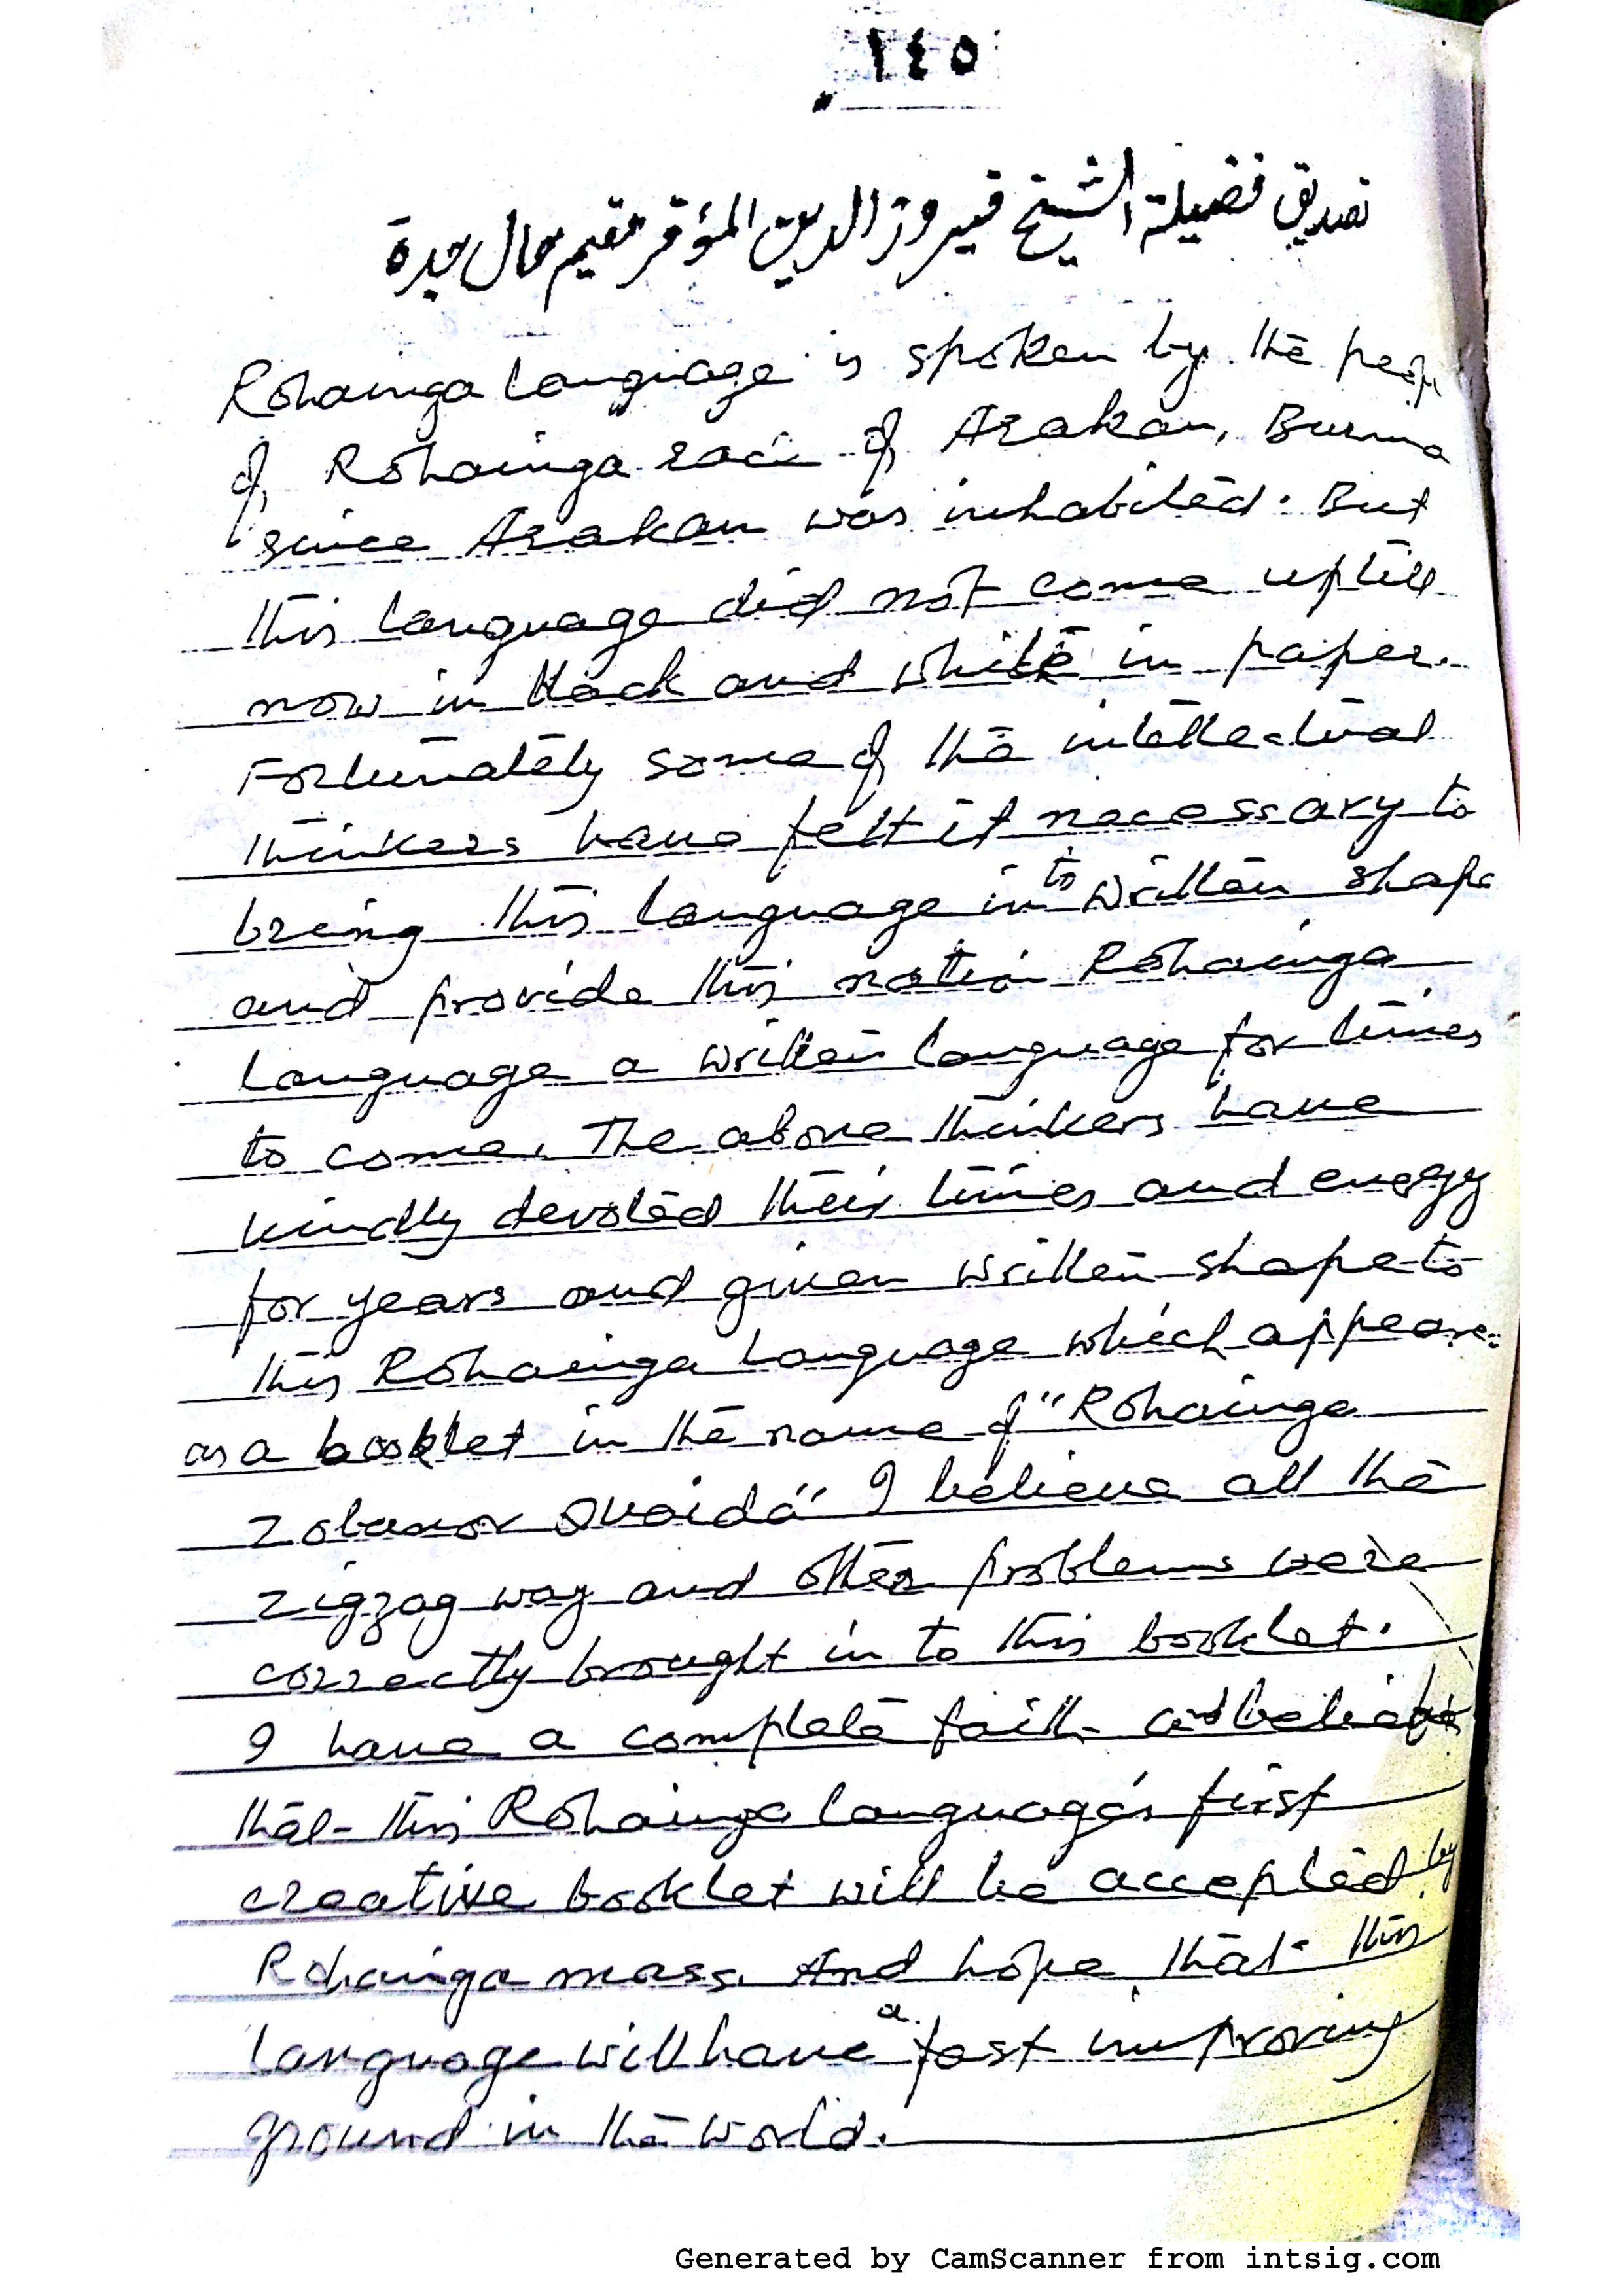 ١٤٥
تصديق فضيلة الشيخ فيروز الدين المؤقر مقيم حال جدة
Rohainga language is spoken by the
of Rohainga race of Arakan, Burma
since Arakan was inhabited. But
this language did not come uptill
now in black and white in paper.
Fortunately some of the intellectual
thinkers have felt it necessary to
bring this language into written shape
and provide this nation Rohainga
language a written language for times
to come. The above thinkers have
kindly devoted their times and energy
for years and given written shape to
this Rohainga language which appeare
as a booklet in the name of "Rohainga
Zobanor Quaida" I believe all the
zigzag way and other problems were
correctly brought in to this booklet.
I have a complete faith and
that this Rohainga language's first
creative booklet will be accepted by
Rohainga mass. And hope that this
language will have a fast improving
ground in the world.
Generated by CamScanner from intsig.com